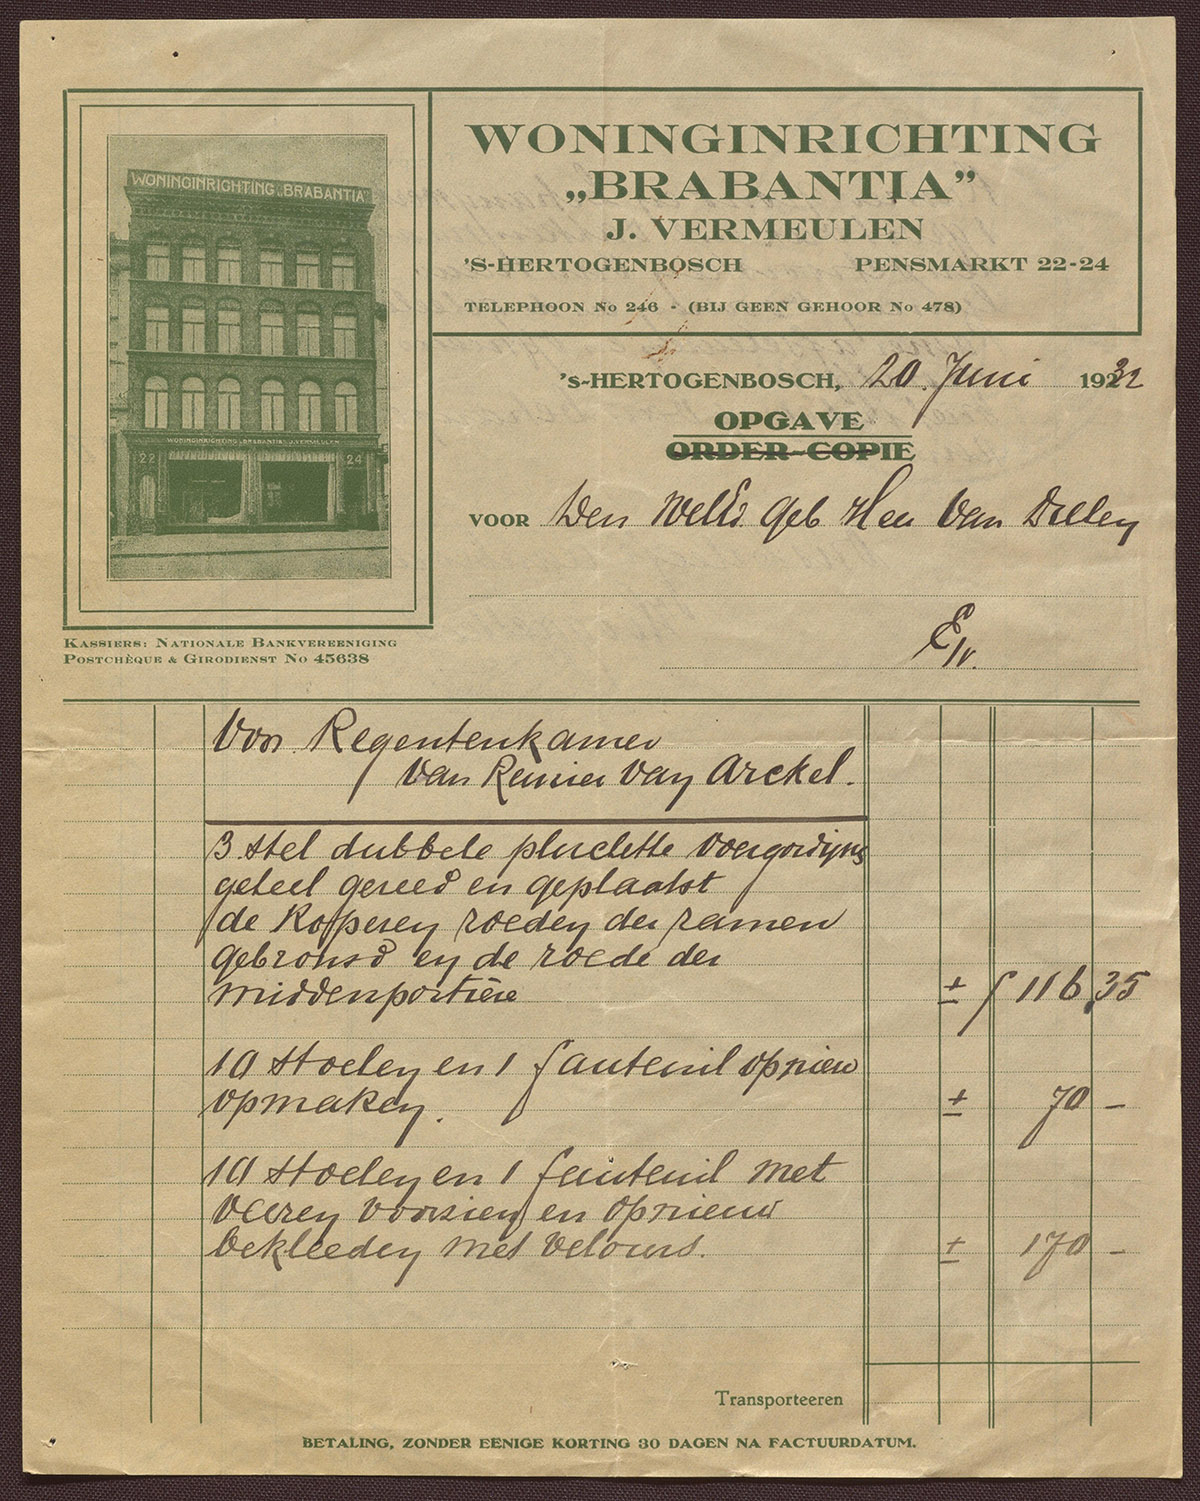 WONINGINRICHTING „BRABANTIA”
WONINGINRICHTING „BRABANTIA” J. VERMEULEN
22
24
WONINGINRICHTING
„BRABANTIA”
J. VERMEULEN
'S-HERTOGENBOSCH PENSMARKT 22-24
TELEPHOON No 246 - (BIJ GEEN GEHOOR No 478)
KASSIERS: NATIONALE BANKVEREENIGING
POSTCHÈQUE & GIRODIENST No 45638
's-HERTOGENBOSCH, 20 Juni 1932
OPGAVE
ORDER-COPIE
VOOR Den WelEd. Geb Heer Van
E/v.
Voor Regentenkamer
van Reinier Van Arckel.
3 stel dubbele pluchette voergordijns
geheel gereed en geplaatst
de Koperen roeden der ramen
gebronsd en de roede der
middenportière ± f 116,35
10 stoelen en 1 fauteuil opnieuw
opmaken. ± 70 –
10 stoelen en 1 fauteuil met
veeren voorzien en opnieuw
bekleeden met velours. ± 170 –
Transporteeren
BETALING, ZONDER EENIGE KORTING 30 DAGEN NA FACTUURDATUM.